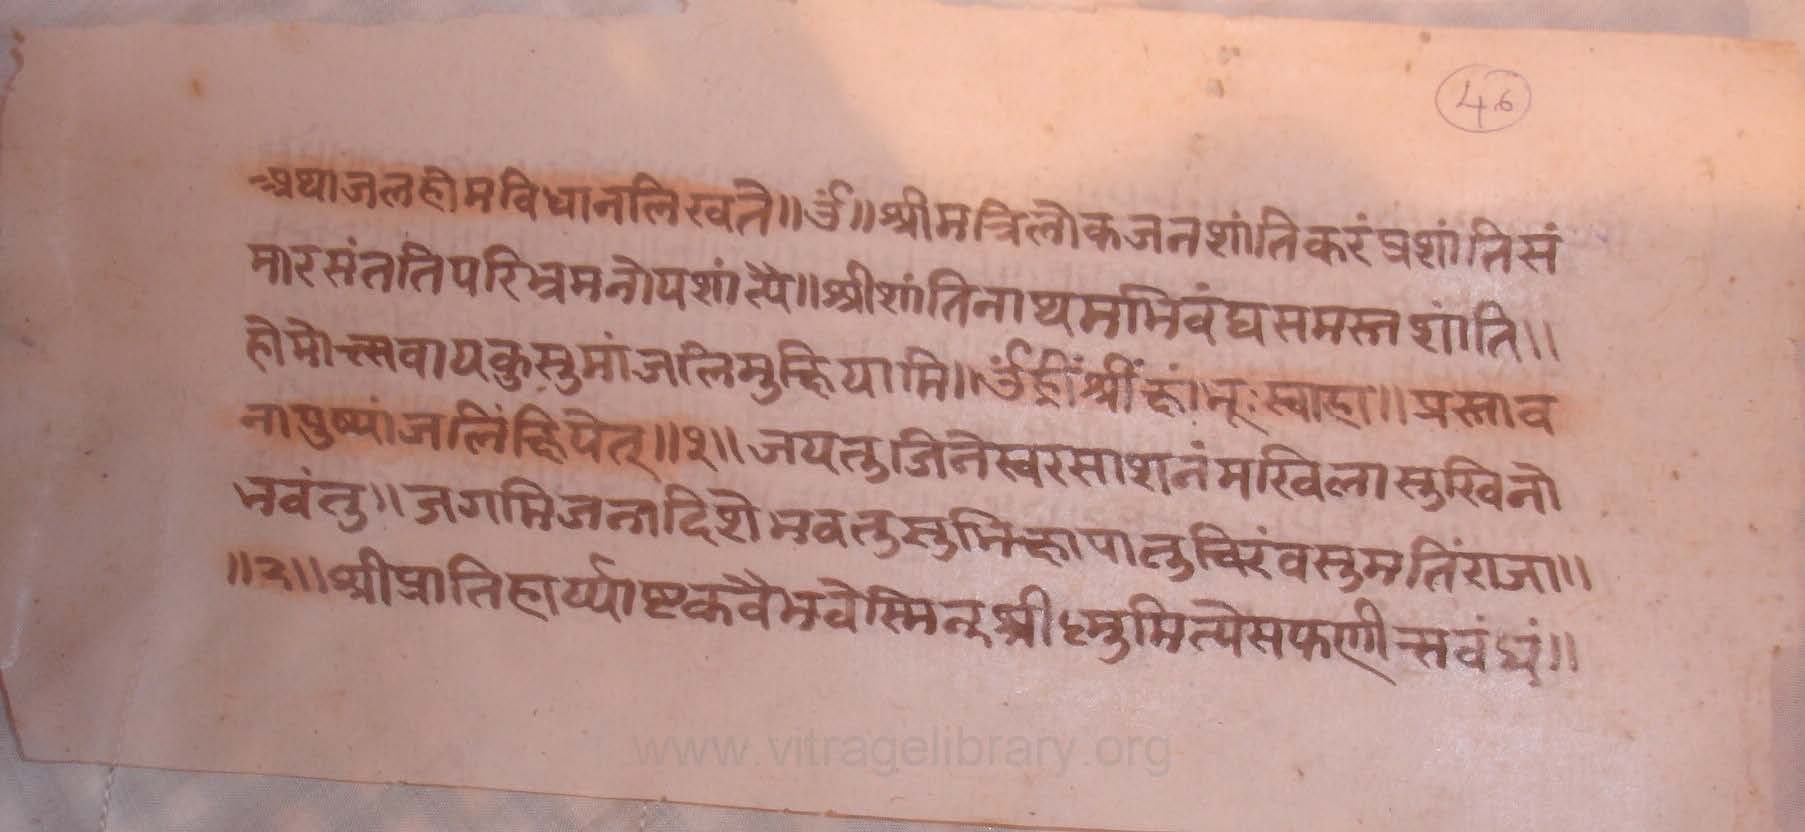 46
अथाजलहोमविधानलिखते॥ ॐ॥ श्रीमत्रिलोकजनशांतिकरं प्रशांतिसं
मारसंततिपरिभ्रमनोपशांत्यै॥ श्रीशांतिनाथमभिवंद्यसमस्तशांति॥
होमोत्सवायकुसुमांजलिमुत्क्षिपामि॥ ॐ ह्रीं श्रीं क्षां भूः स्वाहा॥ प्रस्ताव
नापुष्पांजलिंक्षिपेत्॥१॥ जयतुजिनेस्वरसाशनंमखिलासुखिनो
भवंतु॥ जगमिजनादिशेभवतुसुभिक्षापातुचिरंवसुमतिंराजा॥
॥२॥ श्रीप्रातिहार्य्याष्टकवैभवेस्मिन्
www.vitragelibrary.org